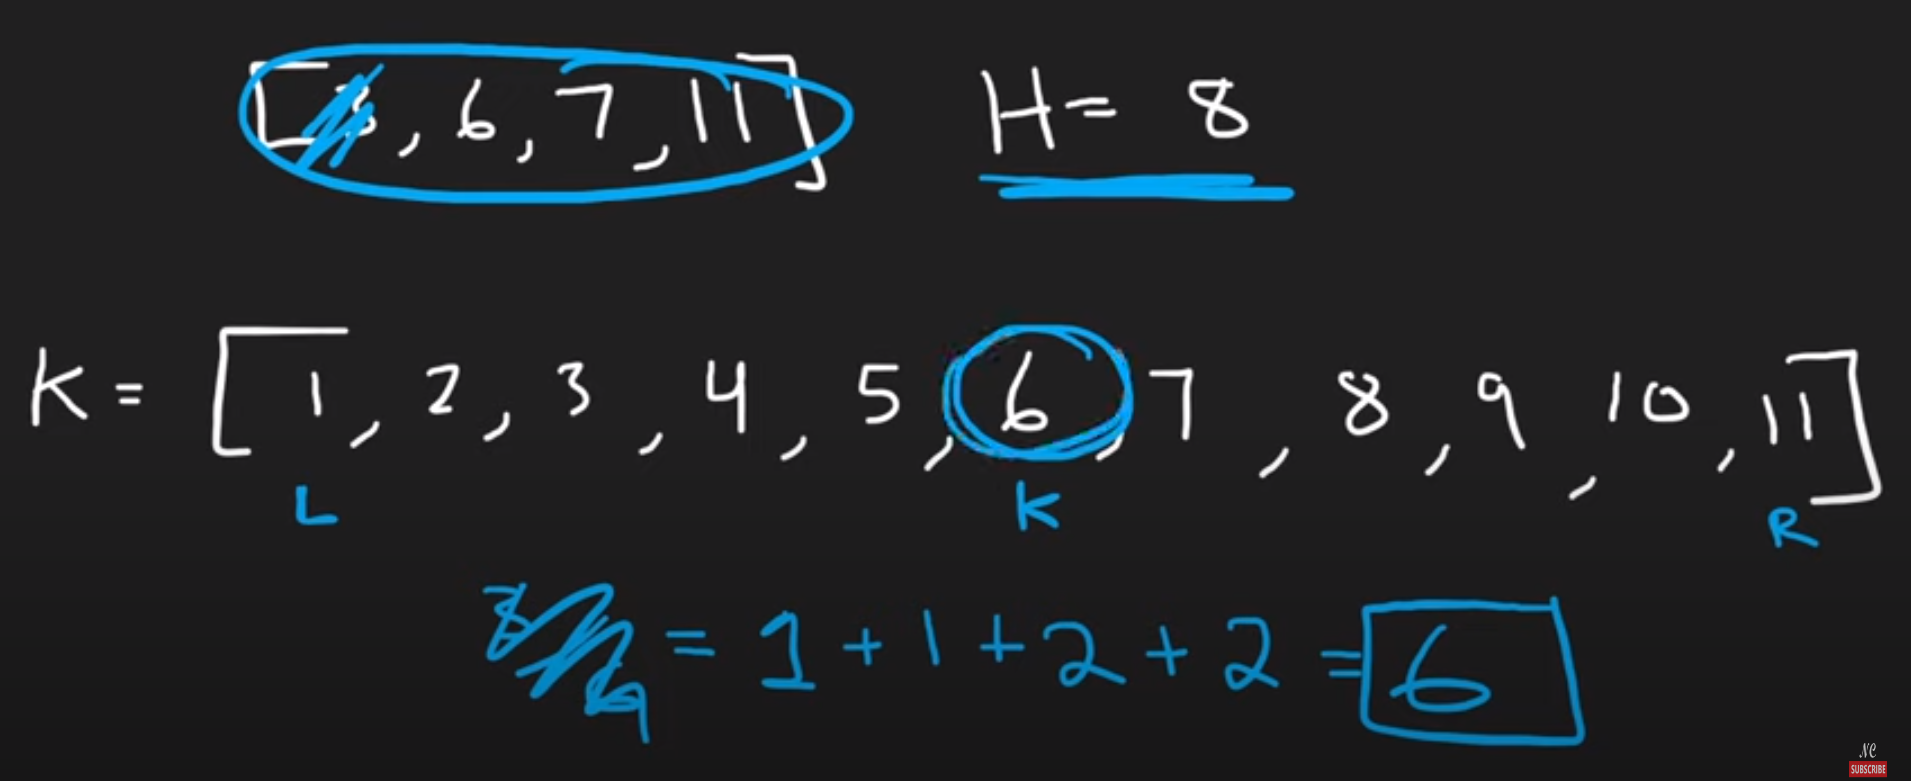 [3, 6, 7, 11] H = 8
K = [1, 2, 3, 4, 5, 6, 7, 8, 9, 10, 11]
L K R
= 1 + 1 + 2 + 2 = 6
NC
SUBSCRIBE